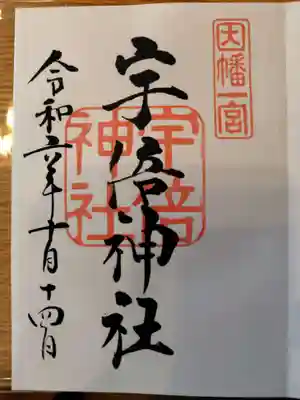 因幡一宮
宇倍神社
宇倍神社
令和年十月十四日